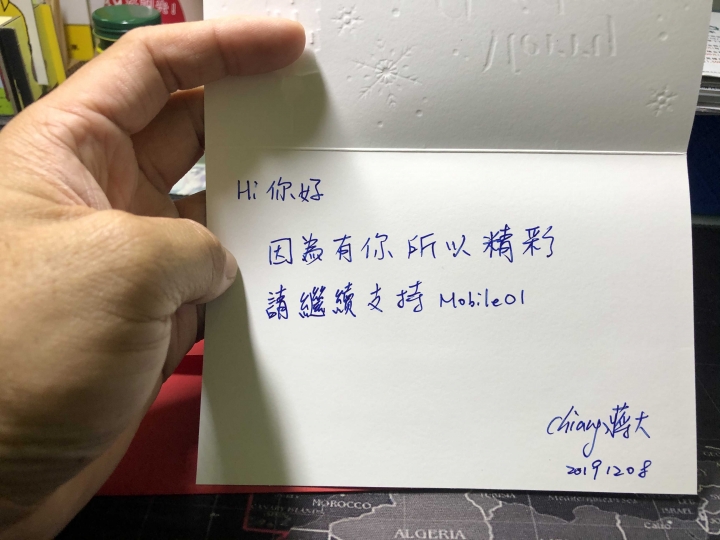 Hi 你好
因為有你所以精彩
請繼續支持 Mobile01
Chiang 蔣大
20191208
MOROCCO
ALGERIA
Cairo